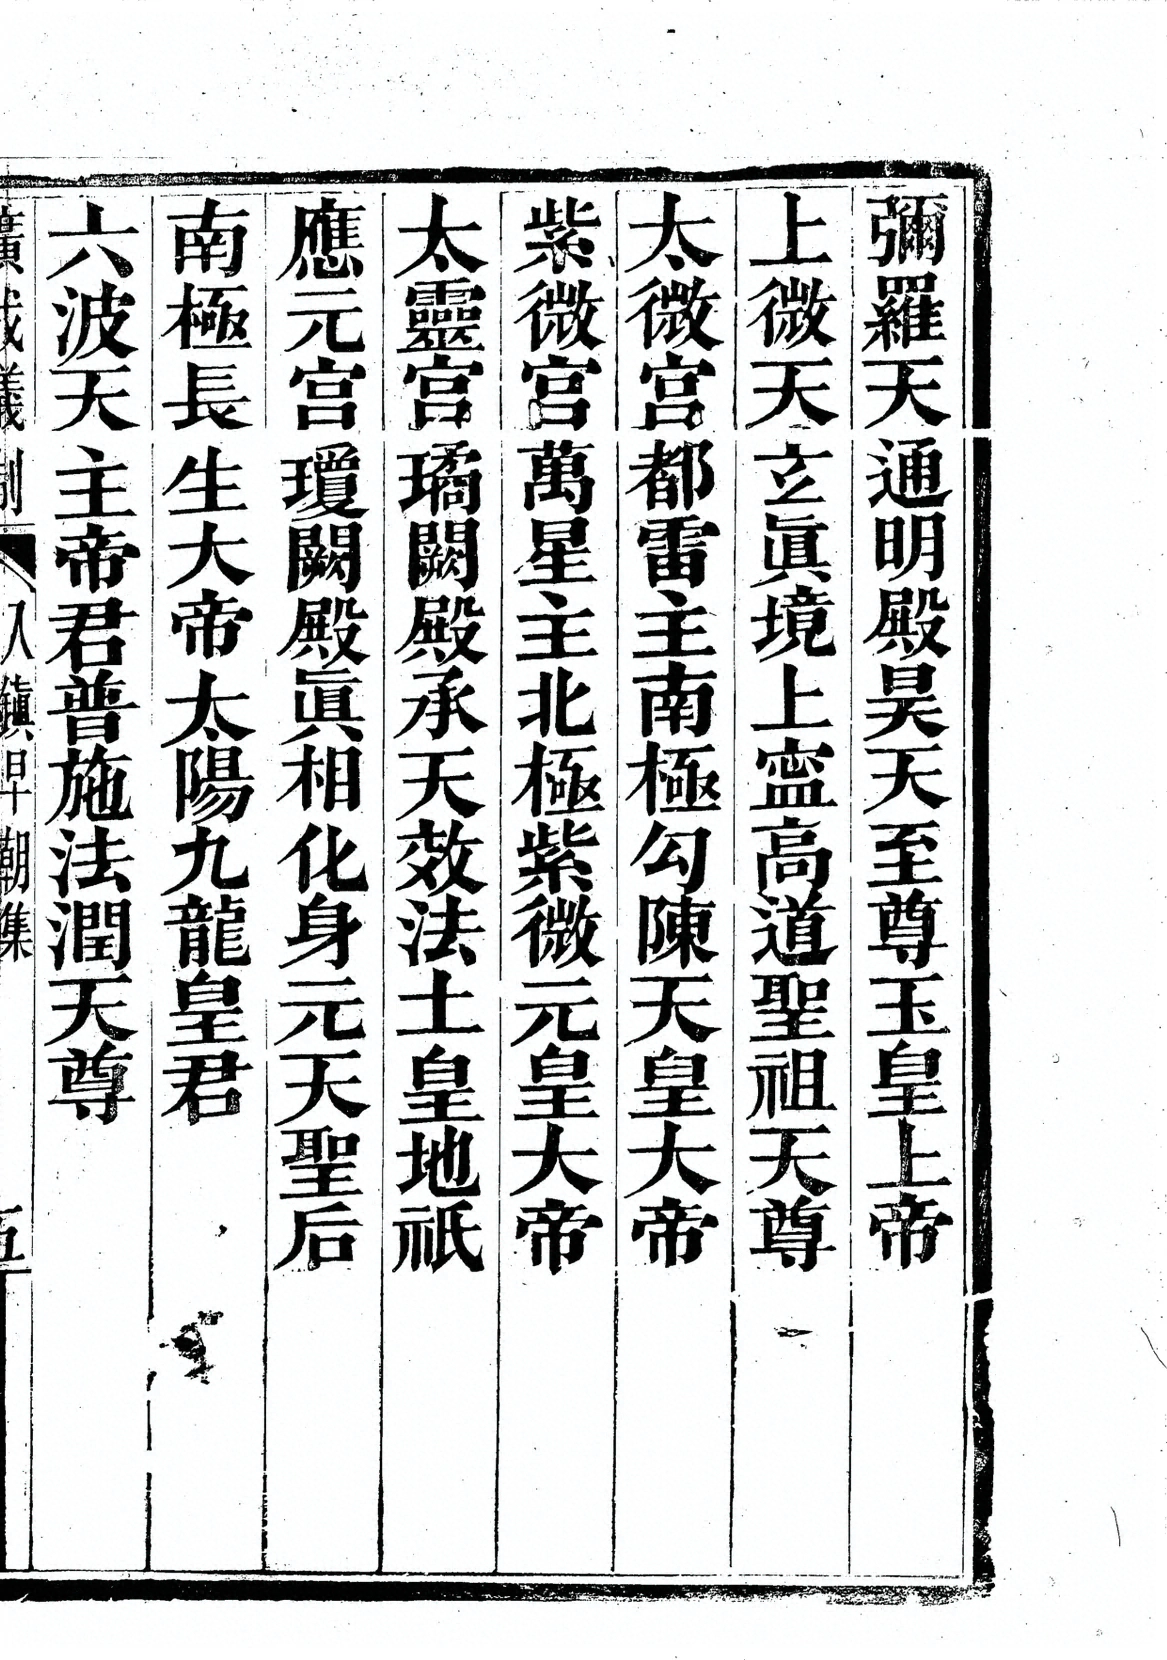 彌羅天通明殿昊天至尊玉皇上帝
上微天玄眞境上𥁞高道聖祖天尊
太微宮都雷主南極勾陳天皇大帝
紫微宮萬星主北極紫微元皇大帝
太靈宮璚闕殿承天效法土皇地祇
應元宮瓊闕殿眞相化身元天聖后
南極長生大帝太陽九龍皇君
六波天主帝君普施法潤天尊
廣成儀制 八鎮早朝集 五